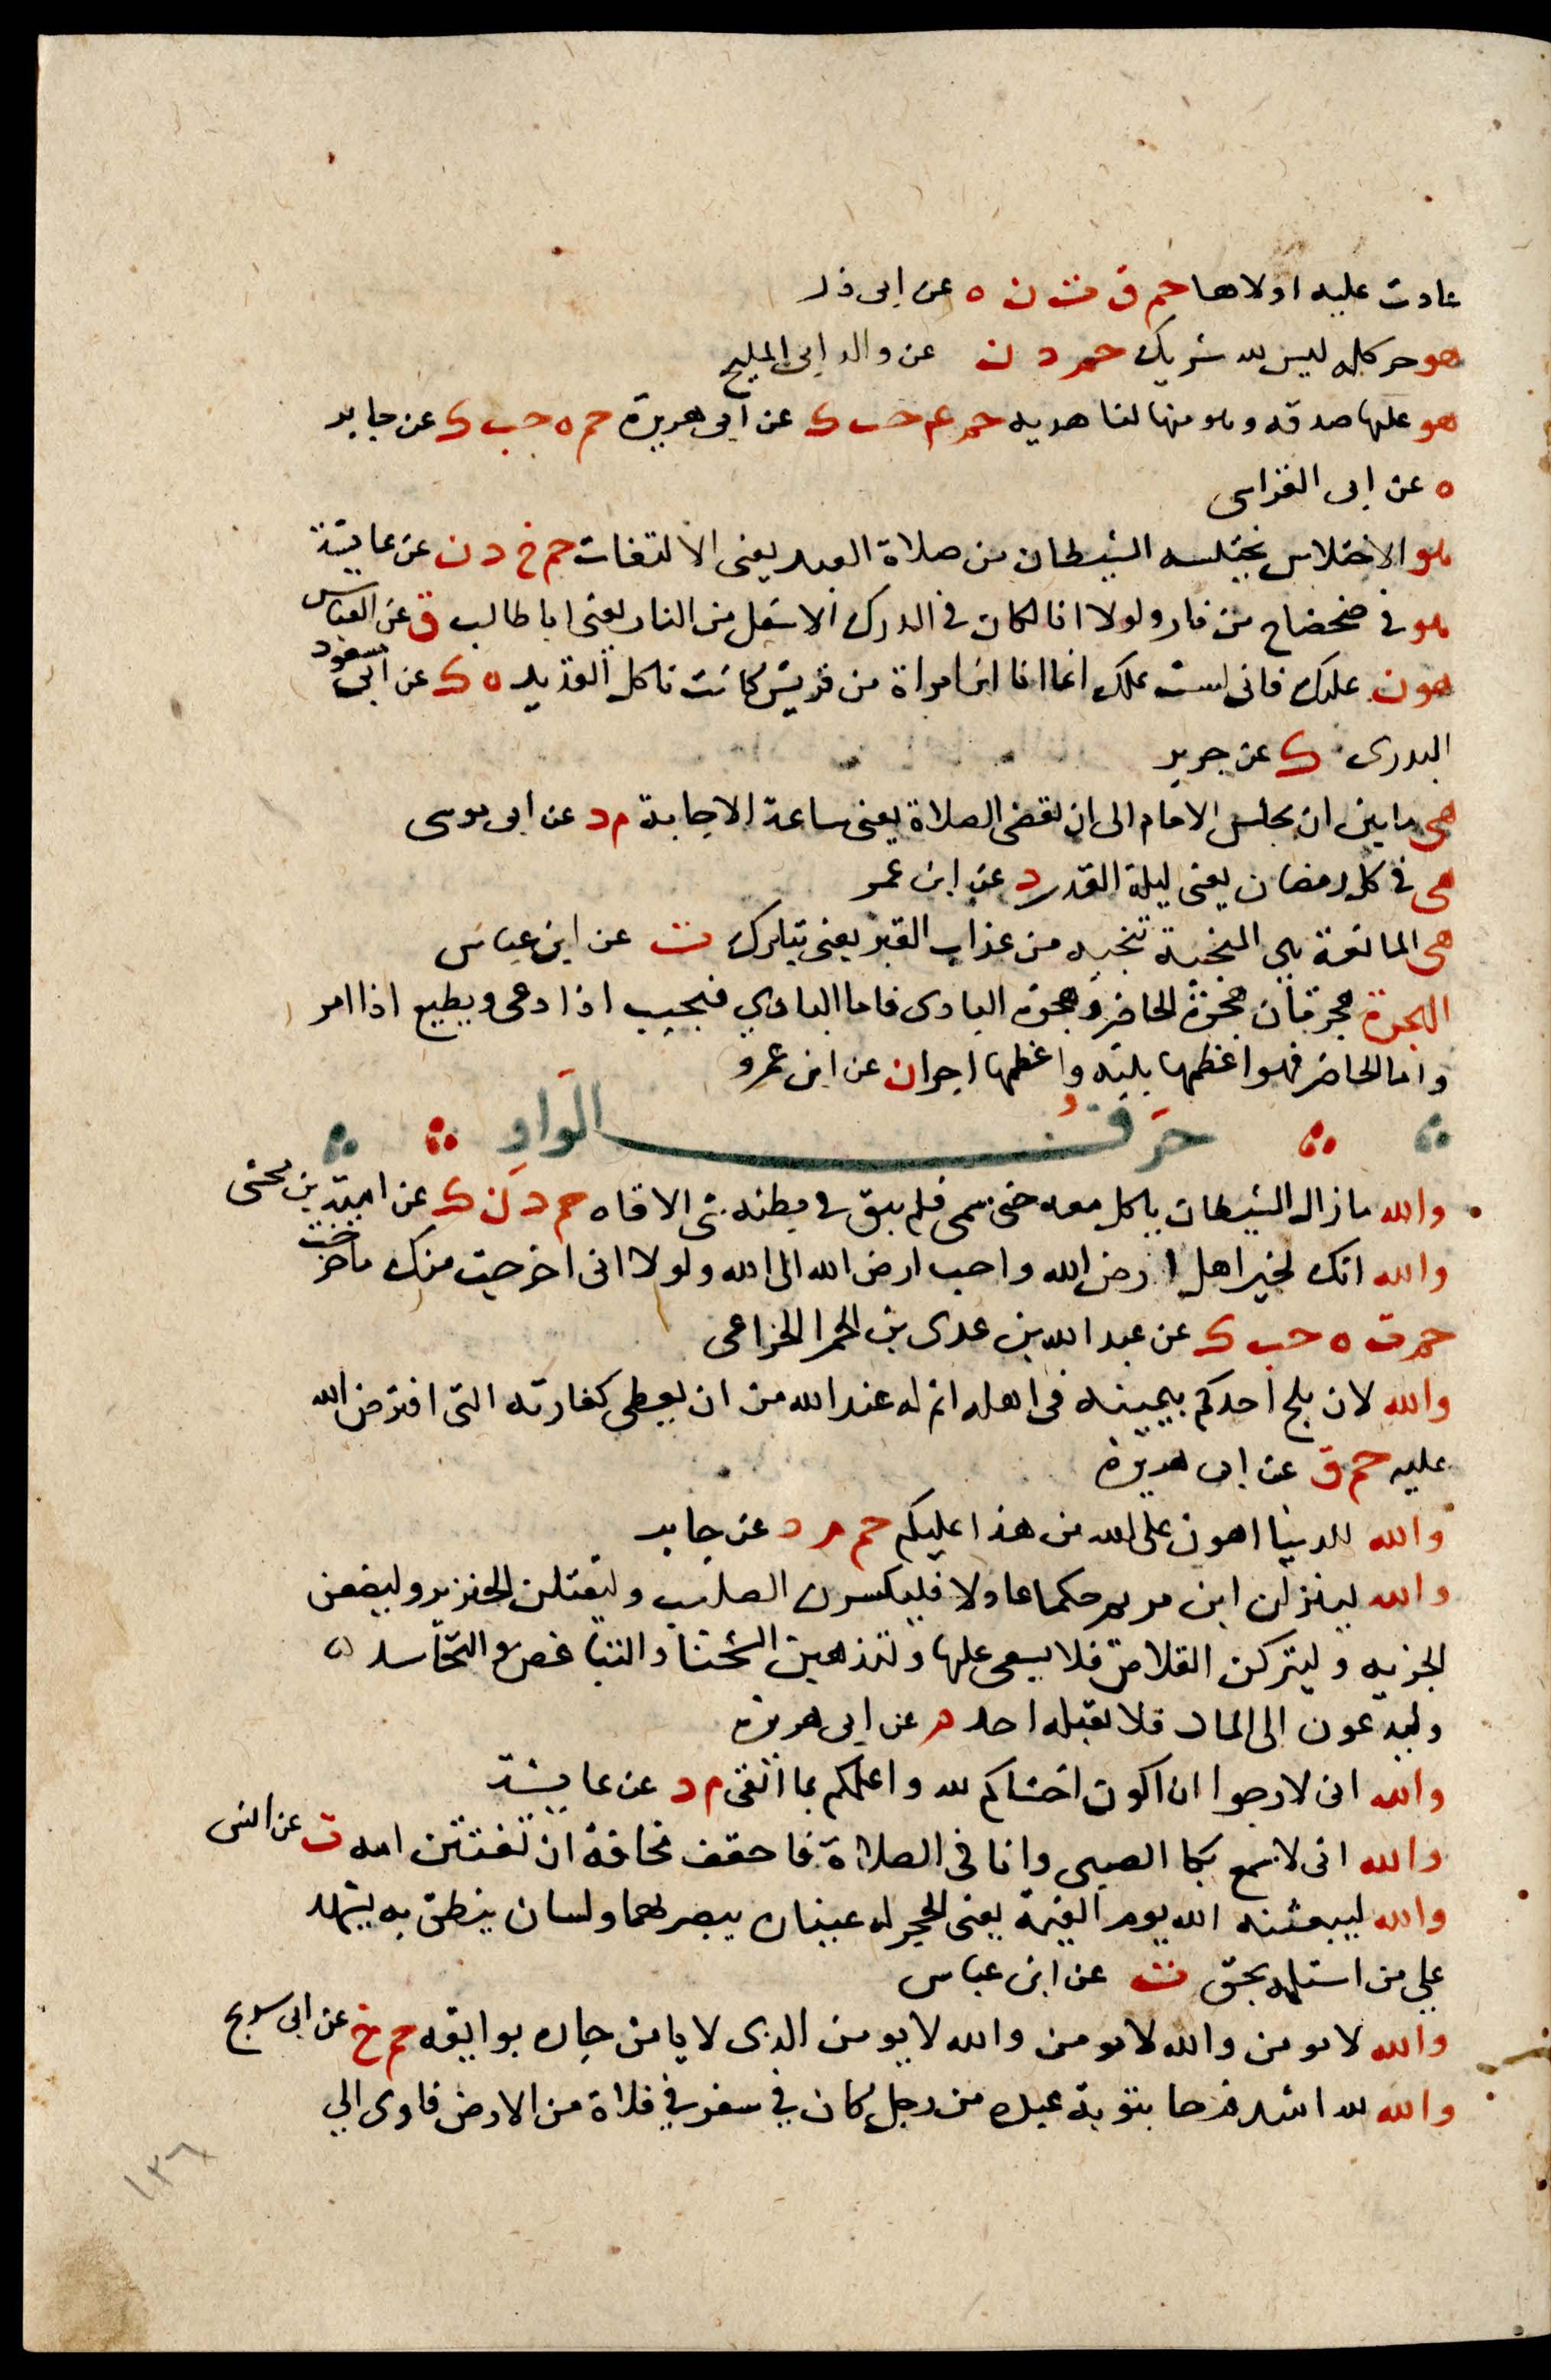 عادت عليه اولاها حم ق ت ن ه عن ابى ذر
هو حر كله ليس لله شريك حم د ن عن والد ابى المليح
هو عليها صدقه وهو منها لنا هديه حم عم حب ك عن ابى هريرة حم ه حب ك عن جابر
ه عن ابى الفراسى
هو الاختلاس يختلسه الشيطان من صلاة العبد يعنى الالتفات حم خ د ن عن عايشة
هو فى ضحضاح من نار ولولا انا لكان فى الدرك الاسفل من النار يعنى ابا طالب ق عن العباس
هون عليك فانى لست بملك انما انا ابن امراة من قريش كانت تاكل القديد ه ك عن ابى مسعود
البدرى ك عن جرير
هى ما بين ان يجلس الامام الى ان تقضى الصلاة يعنى ساعة الاجابة م د عن ابى موسى
هى فى كل رمضان يعنى ليلة القدر د عن ابن عمر
هى المانعة هى المنجية تنجيه من عذاب القبر يعنى تبارك ت عن ابن عباس
الهجرة هجرتان هجرة الحاضر وهجرة البادى فاما البادي فيجيب اذا دعى ويطيع اذا امر
واما الحاضر فهو اعظمها بلية واعظمها اجرا ن عن ابن عمرو
حَرفُ الوَاوِ
والله مازال الشيطان ياكل معه حتى سمى فلم يبق فى بطنه شى الا قاه حم د ن ك عن امية بن مخشى
والله انك لخير اهل ارض الله واحب ارض الله الى الله ولولا انى اخرجت منك ما خرجت
حم ت ه حب ك عن عبد الله بن عدى بن الحمرا الخزاعى
والله لان يلج احدكم بيمينه فى اهله اثم له عند الله من ان يعطى كفارته التى افترض الله
عليه حم ق عن ابى هريرة
والله للدنيا اهون على الله من هذا عليكم حم م د عن جابر
والله لينزلن ابن مريم حكما عادلا فليكسرن الصليب وليقتلن الخنزير وليضعن
الجزيه وليتركن القلاص فلا يسعى عليها ولتذهبن الشحنا والتباغض والتحاسد
وليدعون الى المال فلا يقبله احد م عن ابى هريرة
والله انى لارجوا ان اكون اخشاكم لله واعلمكم بما اتقى م د عن عايشة
والله انى لاسمع بكا الصبى وانا فى الصلاة فاخفف مخافة ان تفتتن امه ت عن انس
والله ليبعثنه الله يوم القيمة يعنى الحجر له عينان يبصر بهما ولسان ينطق به يشهد
على من استلمه بحق ت عن ابن عباس
والله لا يومن والله لا يومن والله لا يومن الذى لا يامن جاره بوايقه حم خ عن ابى شريح
والله لله اشد فرحا بتوبة عبده من رجل كان في سفر في فلاة من الارض فاوى الي
١٣٨